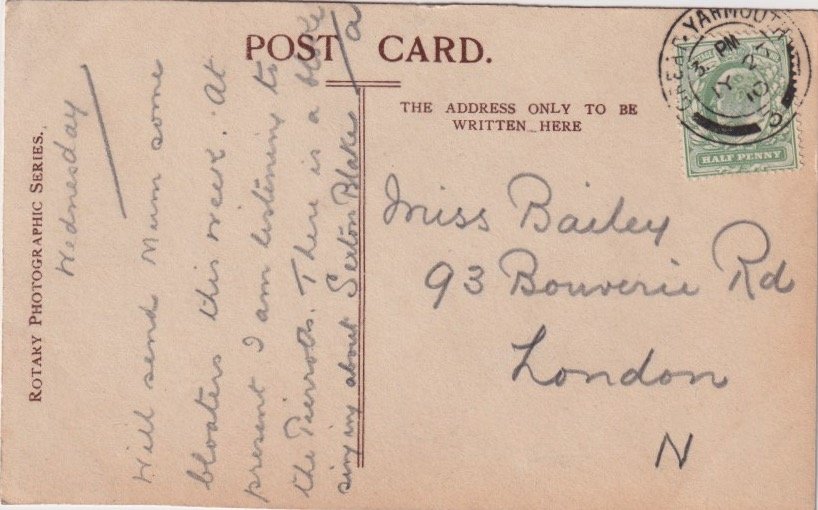 POST CARD.
THE ADDRESS ONLY TO BE
WRITTEN HERE
ROTARY PHOTOGRAPHIC SERIES.
Wednesday
Will send Mum some
bloaters this week. At
present I am listening to
the Pierrots. There is a bloke
singing about Sexton Blake
a
Miss Bailey
93 Bouverie Rd
London
N
GREAT YARMOUTH
3 PM
HALF PENNY